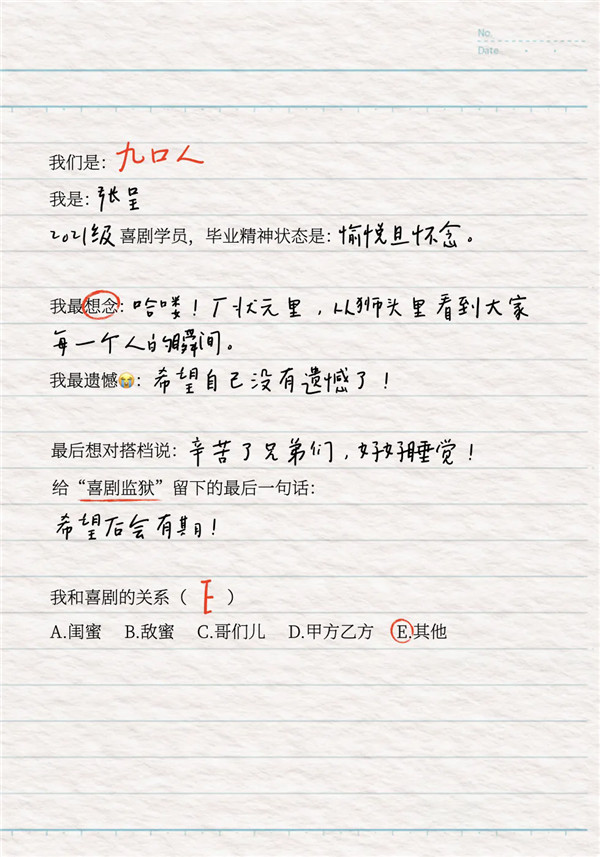 No.
Date
我们是：九口人
我是：张呈
2021级 喜剧学员，毕业精神状态是：愉悦且怀念。
我最想念：哈喽！厂状元里，从狮头里看到大家
每一个人的瞬间。
我最遗憾😭：希望自己没有遗憾了！
最后想对搭档说：辛苦了兄弟们，好好睡觉！
给“喜剧监狱”留下的最后一句话：
希望后会有期！
我和喜剧的关系（ E ）
A.闺蜜 B.敌蜜 C.哥们儿 D.甲方乙方 E.其他